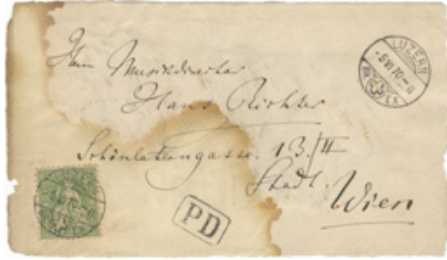 Herrn Musikdirector
Hans Richter
Schönlaterngasse. 13./II
Stadt.
Wien
PD
LUZERN